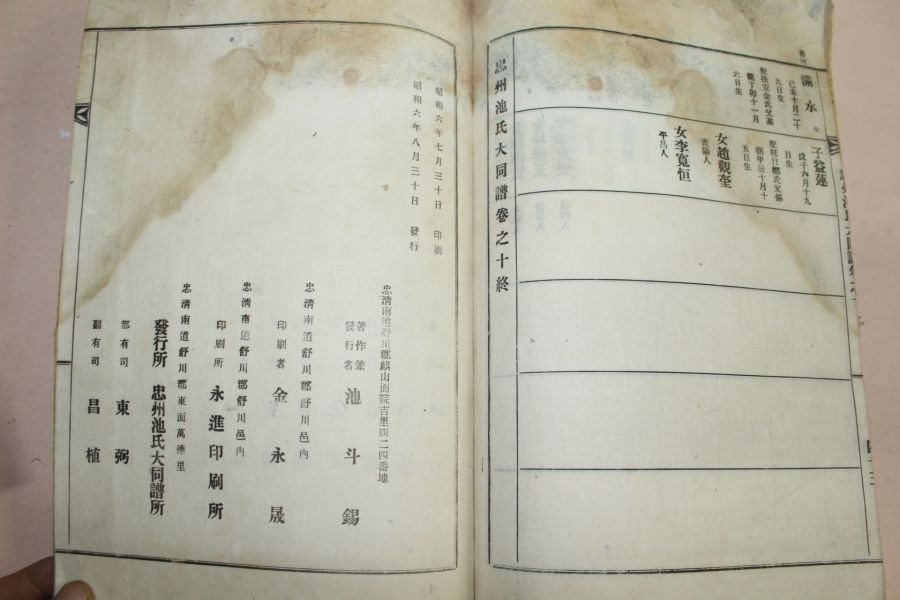 滿水
己未十月二十
九日生
六日生
子益蓮
戊子六月十九
日生
五日生
女趙觀奎
密陽人
女李寬恒
平昌人
忠州池氏大同譜卷之十終
昭和六年七月三十日 印刷
昭和六年八月三十日 發行
忠淸南道舒川郡麒山面院吉里四二四番地
著作兼
發行者 池斗錫
忠淸南道舒川郡舒川邑內
印刷者 金永晟
忠淸南道舒川郡舒川邑內
印刷所 永進印刷所
忠淸南道舒川郡東面萬德里
發行所 忠州池氏大同譜所
都有司 東弼
副有司 昌植
四十三